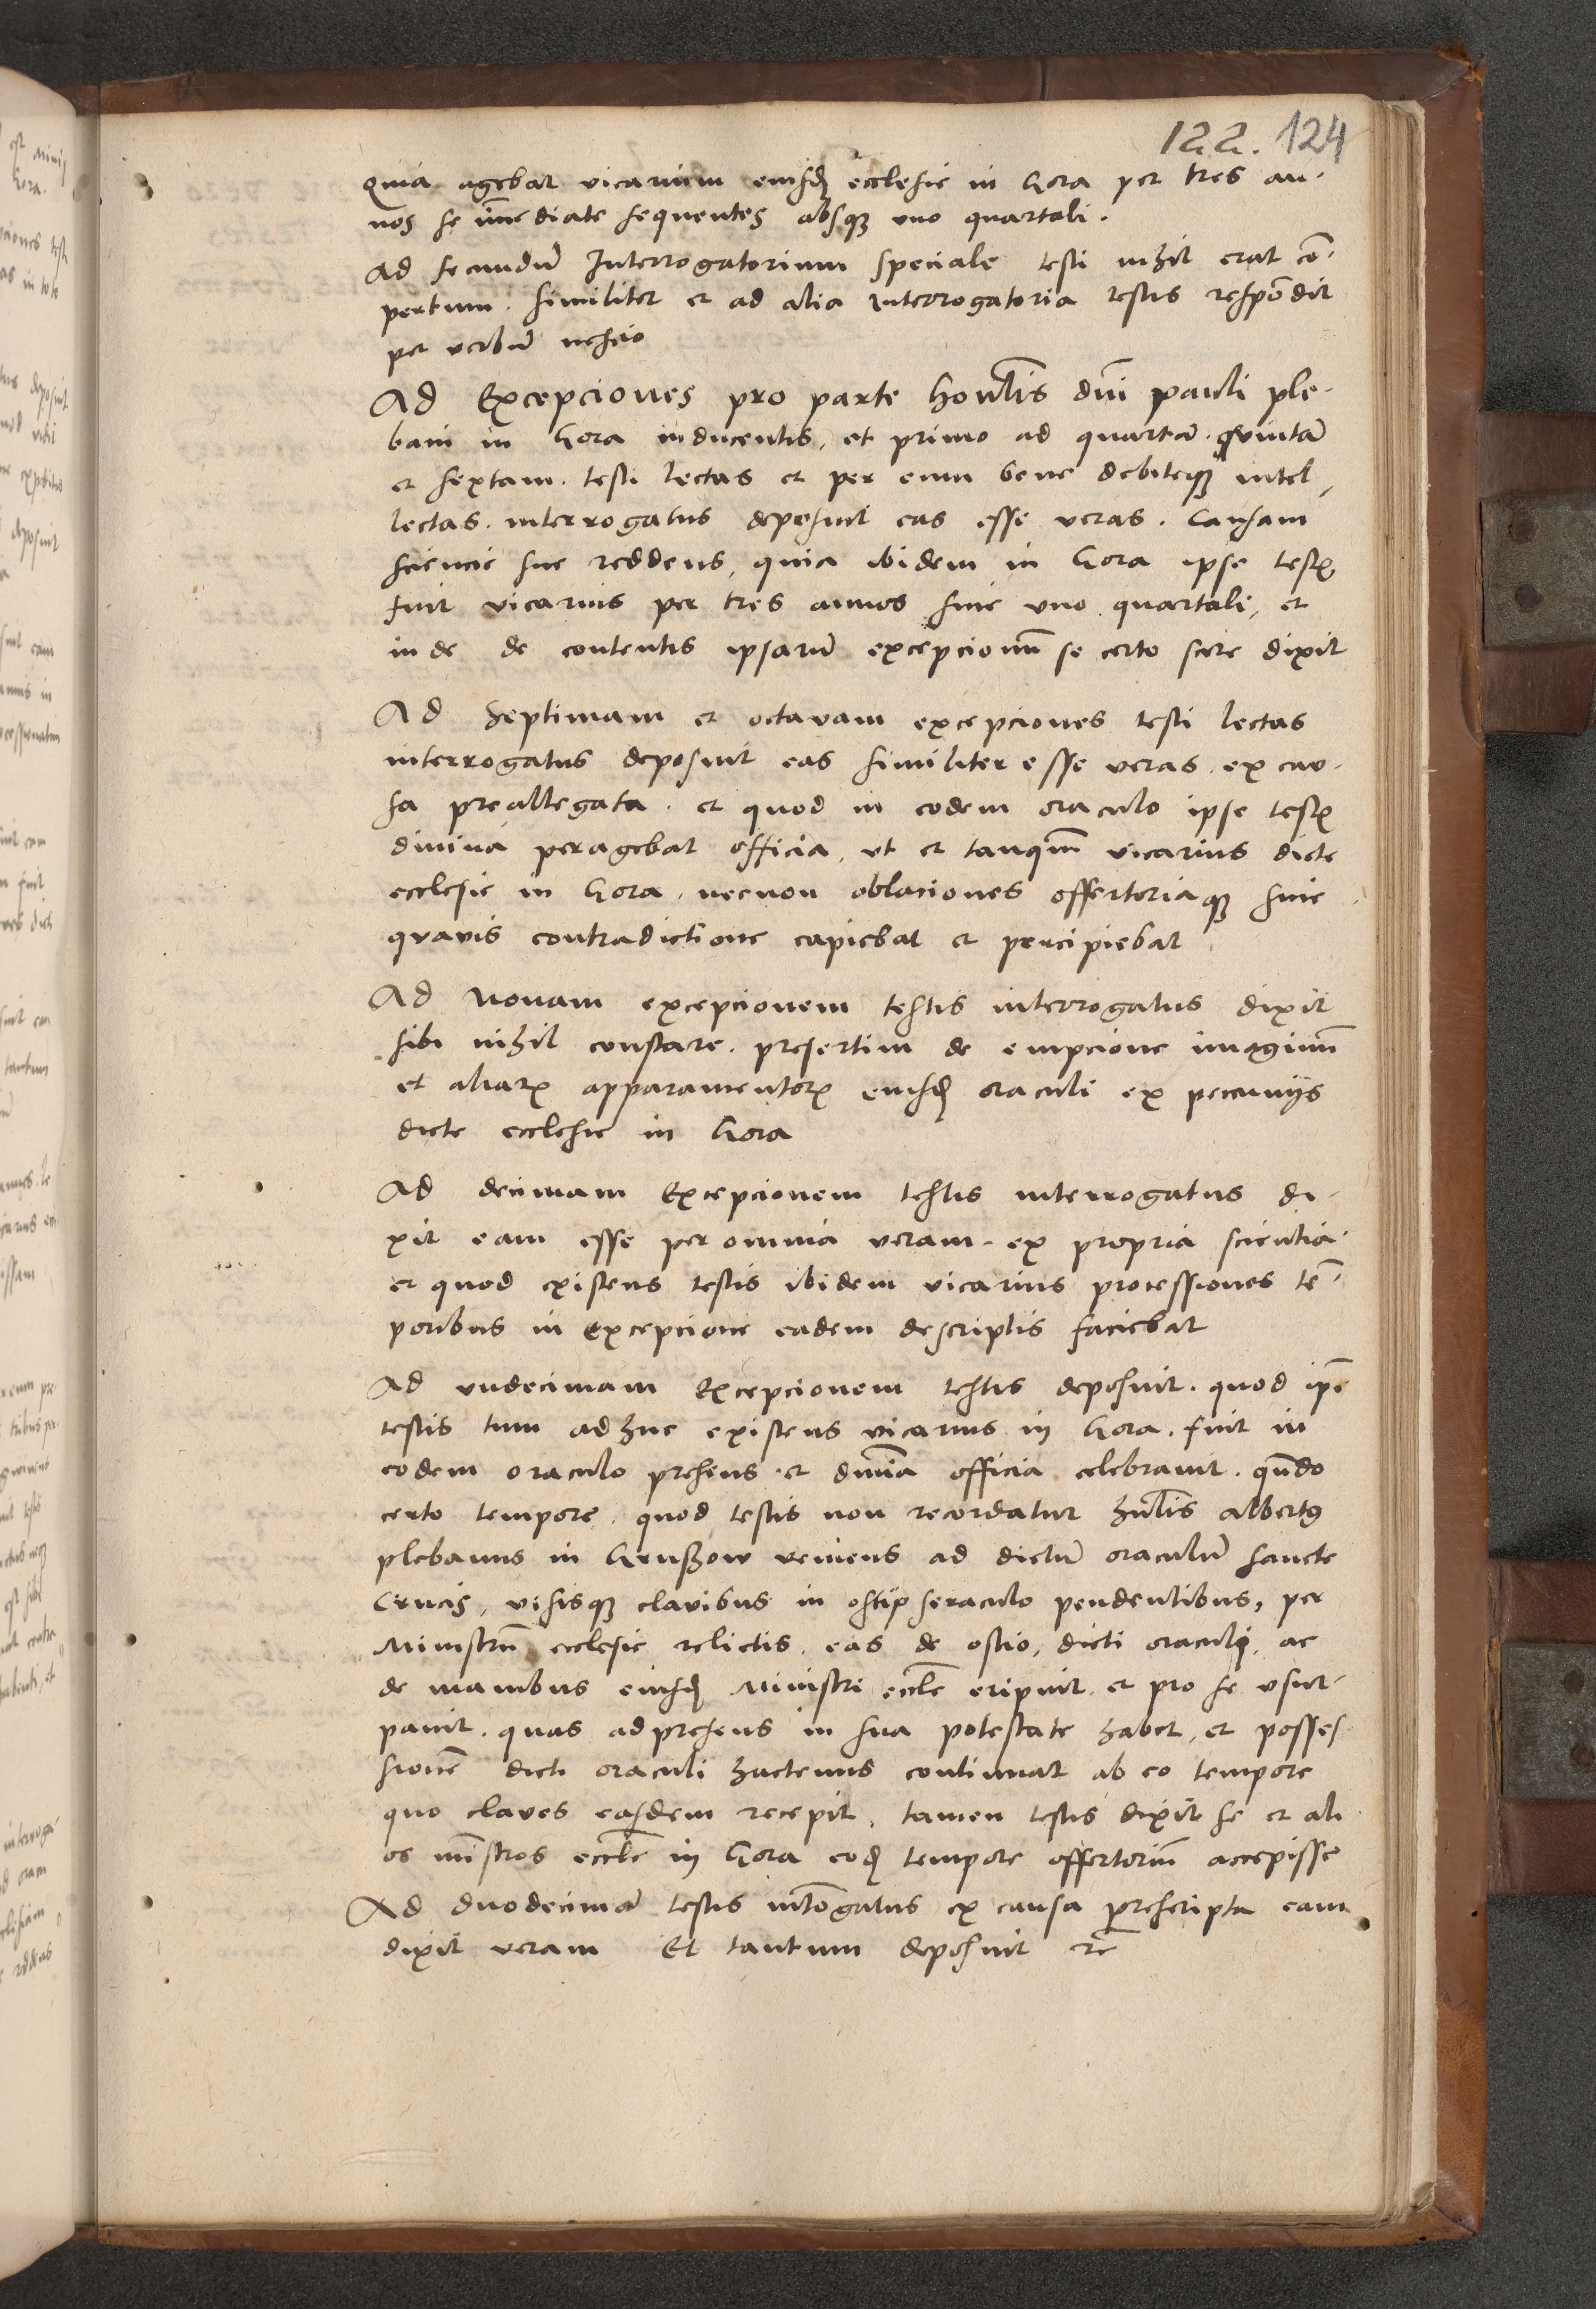 122. 124
Quia agebat vicarium eiusdꝫ ecclesie in Gora per tres an-
nos se im̅ediate sequentes absqꝫ vno quartali.
Ad secundu̅ Interrogatorium speciale testi nihil erat co̅-
pertum. similiter et ad alia Interrogatoria testis respo̅dit
per verbu̅ nescio
Ad Excepciones pro parte hon̅lis dn̅i pauli ple-
bani in Gora inducentis, et primo ad quarta̅. quinta̅
et sextam. testi lectas et per eum bene debiteqꝫ intel,
lectas. interrogatus deposuit eas esse veras. Causam
sciencie sue reddens, quia ibidem in Gora ipse testꝭ
fuit vicarius per tres annos sine vno quartali, et
inde de contentis ipsaru̅ excepcionu̅ se certo scire dixit
Ad Septimam et octauam excepciones testi lectas
interrogatus deposuit eas similiter esse veras. ex cau-
sa preallegata. et quod in eodem oraculo ipse testꝭ
diuina peragebat officia, vt et tanqu̅m vicarius dicte
ecclesie in Gora. necnon oblaciones offertoriaqꝫ sine
quauis contradictione capiebat et percipiebat
Ad Nonam excepcionem testis interrogatus dixit
sibi nihil constare. presertim de empcione imaginu̅
et aliarꝫ apparamentorꝫ eiusdꝫ oraculi ex pecunijs
dicte ecclesie in Gora
Ad decimam Excepcionem testis interrogatus di-
xit eam esse per omnia veram. ex propria scientia.
et quod existens testis ibidem vicarius processiones te̅-
poribus in Excepcione eadem descriptis faciebat
Ad vndecimam Excepcionem testis deposuit. quod ip̅e
testis tum adhuc existens vicarius in Gora. fuit in
eodem oraculo presens. et diui̅a officia celebrauit. qua̅do
certo tempore. quod testis non recordatur hu̅lis albertꝰ
plebanus in Gruszow veniens ad dictu̅ oraculu̅ sancte
Crucis, visisqꝫ clavibus in ostij seraculo pendentibus, per
Ministru̅ ecclesie relictis. eas de ostio, dicti oraculi, ac
de manibus eiusdꝫ Ministri eccl̅e eripuit. et pro se vsur-
pauit. quas ad presens in sua potestate habet, et posses-
sione̅ dicti oraculi hactenus continuat ab eo tempore
quo claves easdem recepit, tamen testis dixit se et ali
os mi̅stros eccl̅e in Gora eodꝫ tempore offertoriu̅ accepisse
Ad duodecima̅ testis inte̅rogatus ex causa prescripta eam
dixit veram Et tantum deposuit